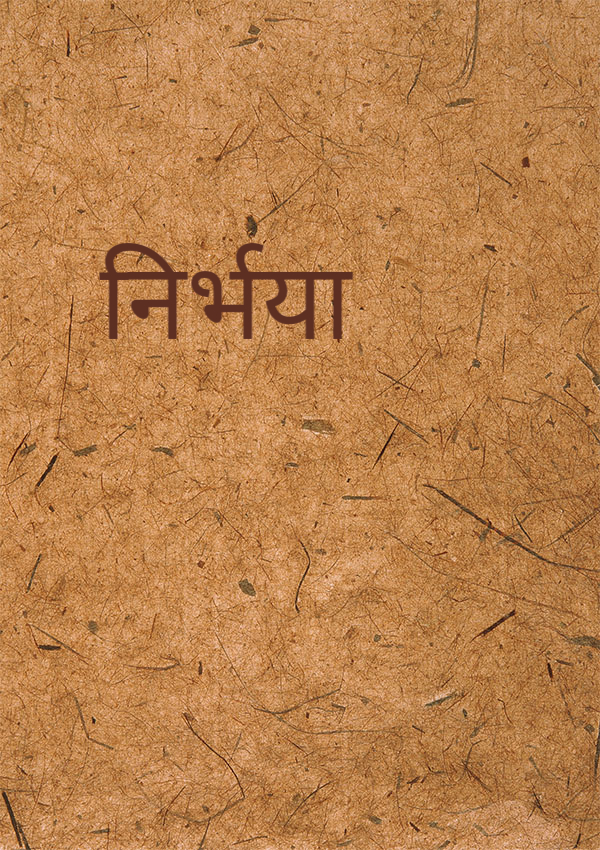 निर्भया